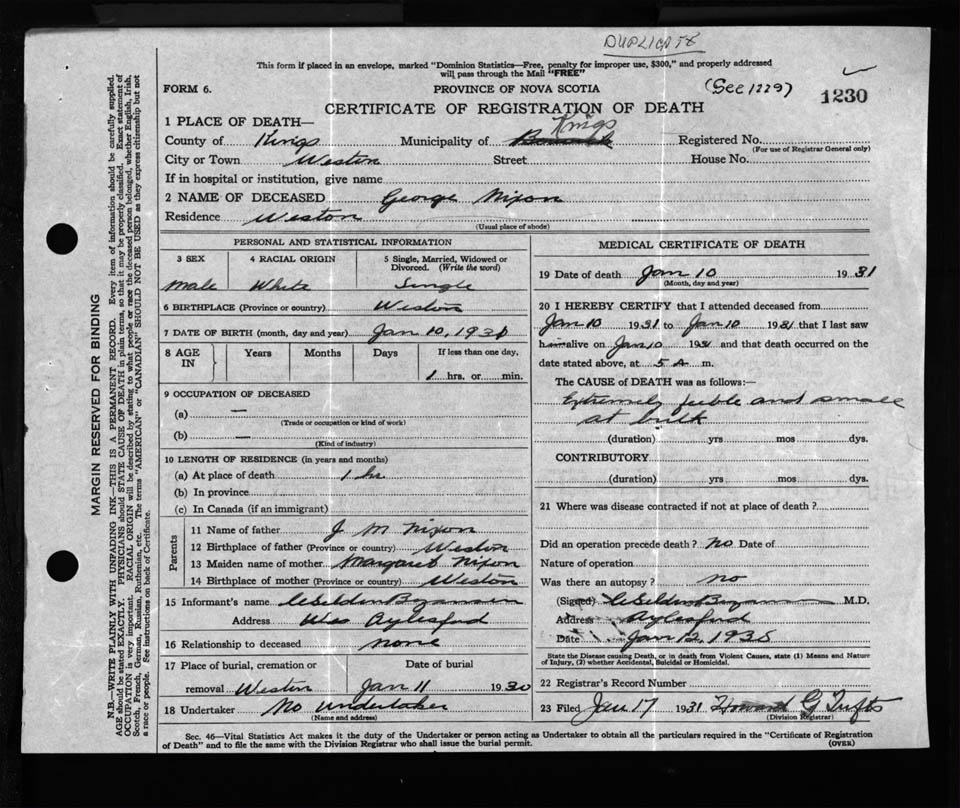 DUPLICATE
This form if placed in an envelope, marked "Dominion Statistics—Free, penalty for improper use, $300," and properly addressed
will pass through the Mail "FREE"
FORM 6. PROVINCE OF NOVA SCOTIA (See 1229) 1230
CERTIFICATE OF REGISTRATION OF DEATH
1 PLACE OF DEATH— Kings
County of Kings Municipality of Registered No.
(For use of Registrar General only)
City or Town Weston Street House No.
If in hospital or institution, give name
2 NAME OF DECEASED George Nixon
Residence Weston
(Usual place of abode)
PERSONAL AND STATISTICAL INFORMATION
3 SEX 4 RACIAL ORIGIN 5 Single, Married, Widowed or Divorced. (Write the word)
Male White Single
6 BIRTHPLACE (Province or country) Weston
7 DATE OF BIRTH (month, day and year) Jan 10, 1931
8 AGE IN Years Months Days If less than one day,
1 hrs. or min.
9 OCCUPATION OF DECEASED
(a) —
(Trade or occupation or kind of work)
(b) —
(Kind of industry)
10 LENGTH OF RESIDENCE (in years and months)
(a) At place of death 1 hr
(b) In province
(c) In Canada (if an immigrant)
Parents
11 Name of father J M Nixon
12 Birthplace of father (Province or country) Weston
13 Maiden name of mother Margaret Nixon
14 Birthplace of mother (Province or country) Weston
15 Informant's name
Address Aylesford
16 Relationship to deceased none
17 Place of burial, cremation or Date of burial
removal Weston Jan 11 1930
18 Undertaker No undertaker
(Name and address)
MEDICAL CERTIFICATE OF DEATH
19 Date of death Jan 10 1931
(Month, day and year)
20 I HEREBY CERTIFY that I attended deceased from
Jan 10 1931 to Jan 10 1931 that I last saw
him alive on Jan 10 1931 and that death occurred on the
date stated above, at 5 A m.
The CAUSE OF DEATH was as follows:—
Extremely feeble and small
at birth
(duration) yrs mos dys.
CONTRIBUTORY
(duration) yrs mos dys.
21 Where was disease contracted if not at place of death?
Did an operation precede death? No Date of
Nature of operation
Was there an autopsy? no
(Signed) M.D.
Address Aylesford
Date Jan 12, 193
State the Disease causing Death, or in death from Violent Causes, state (1) Means and Nature
of Injury, (2) whether Accidental, Suicidal or Homicidal.
22 Registrar's Record Number
23 Filed Jan 17 1931 Howard G Tufts
(Division Registrar)
Sec. 46—Vital Statistics Act makes it the duty of the Undertaker or person acting as Undertaker to obtain all the particulars required in the "Certificate of Registration
of Death" and to file the same with the Division Registrar who shall issue the burial permit. (OVER)
MARGIN RESERVED FOR BINDING
N.B.—WRITE PLAINLY WITH UNFADING INK—THIS IS A PERMANENT RECORD. Every item of information should be carefully supplied.
AGE should be stated EXACTLY. PHYSICIANS should STATE CAUSE OF DEATH in plain terms, so that it may be properly classified. Exact statement of
OCCUPATION is very important. RACIAL ORIGIN will be described by stating to what people or race the deceased person belonged, whether English, Irish,
Scotch, French, German, Russian, Ruthenian, etc. The terms "AMERICAN" or "CANADIAN" SHOULD NOT BE USED as they express citizenship but not
a race or people. See instructions on back of Certificate.